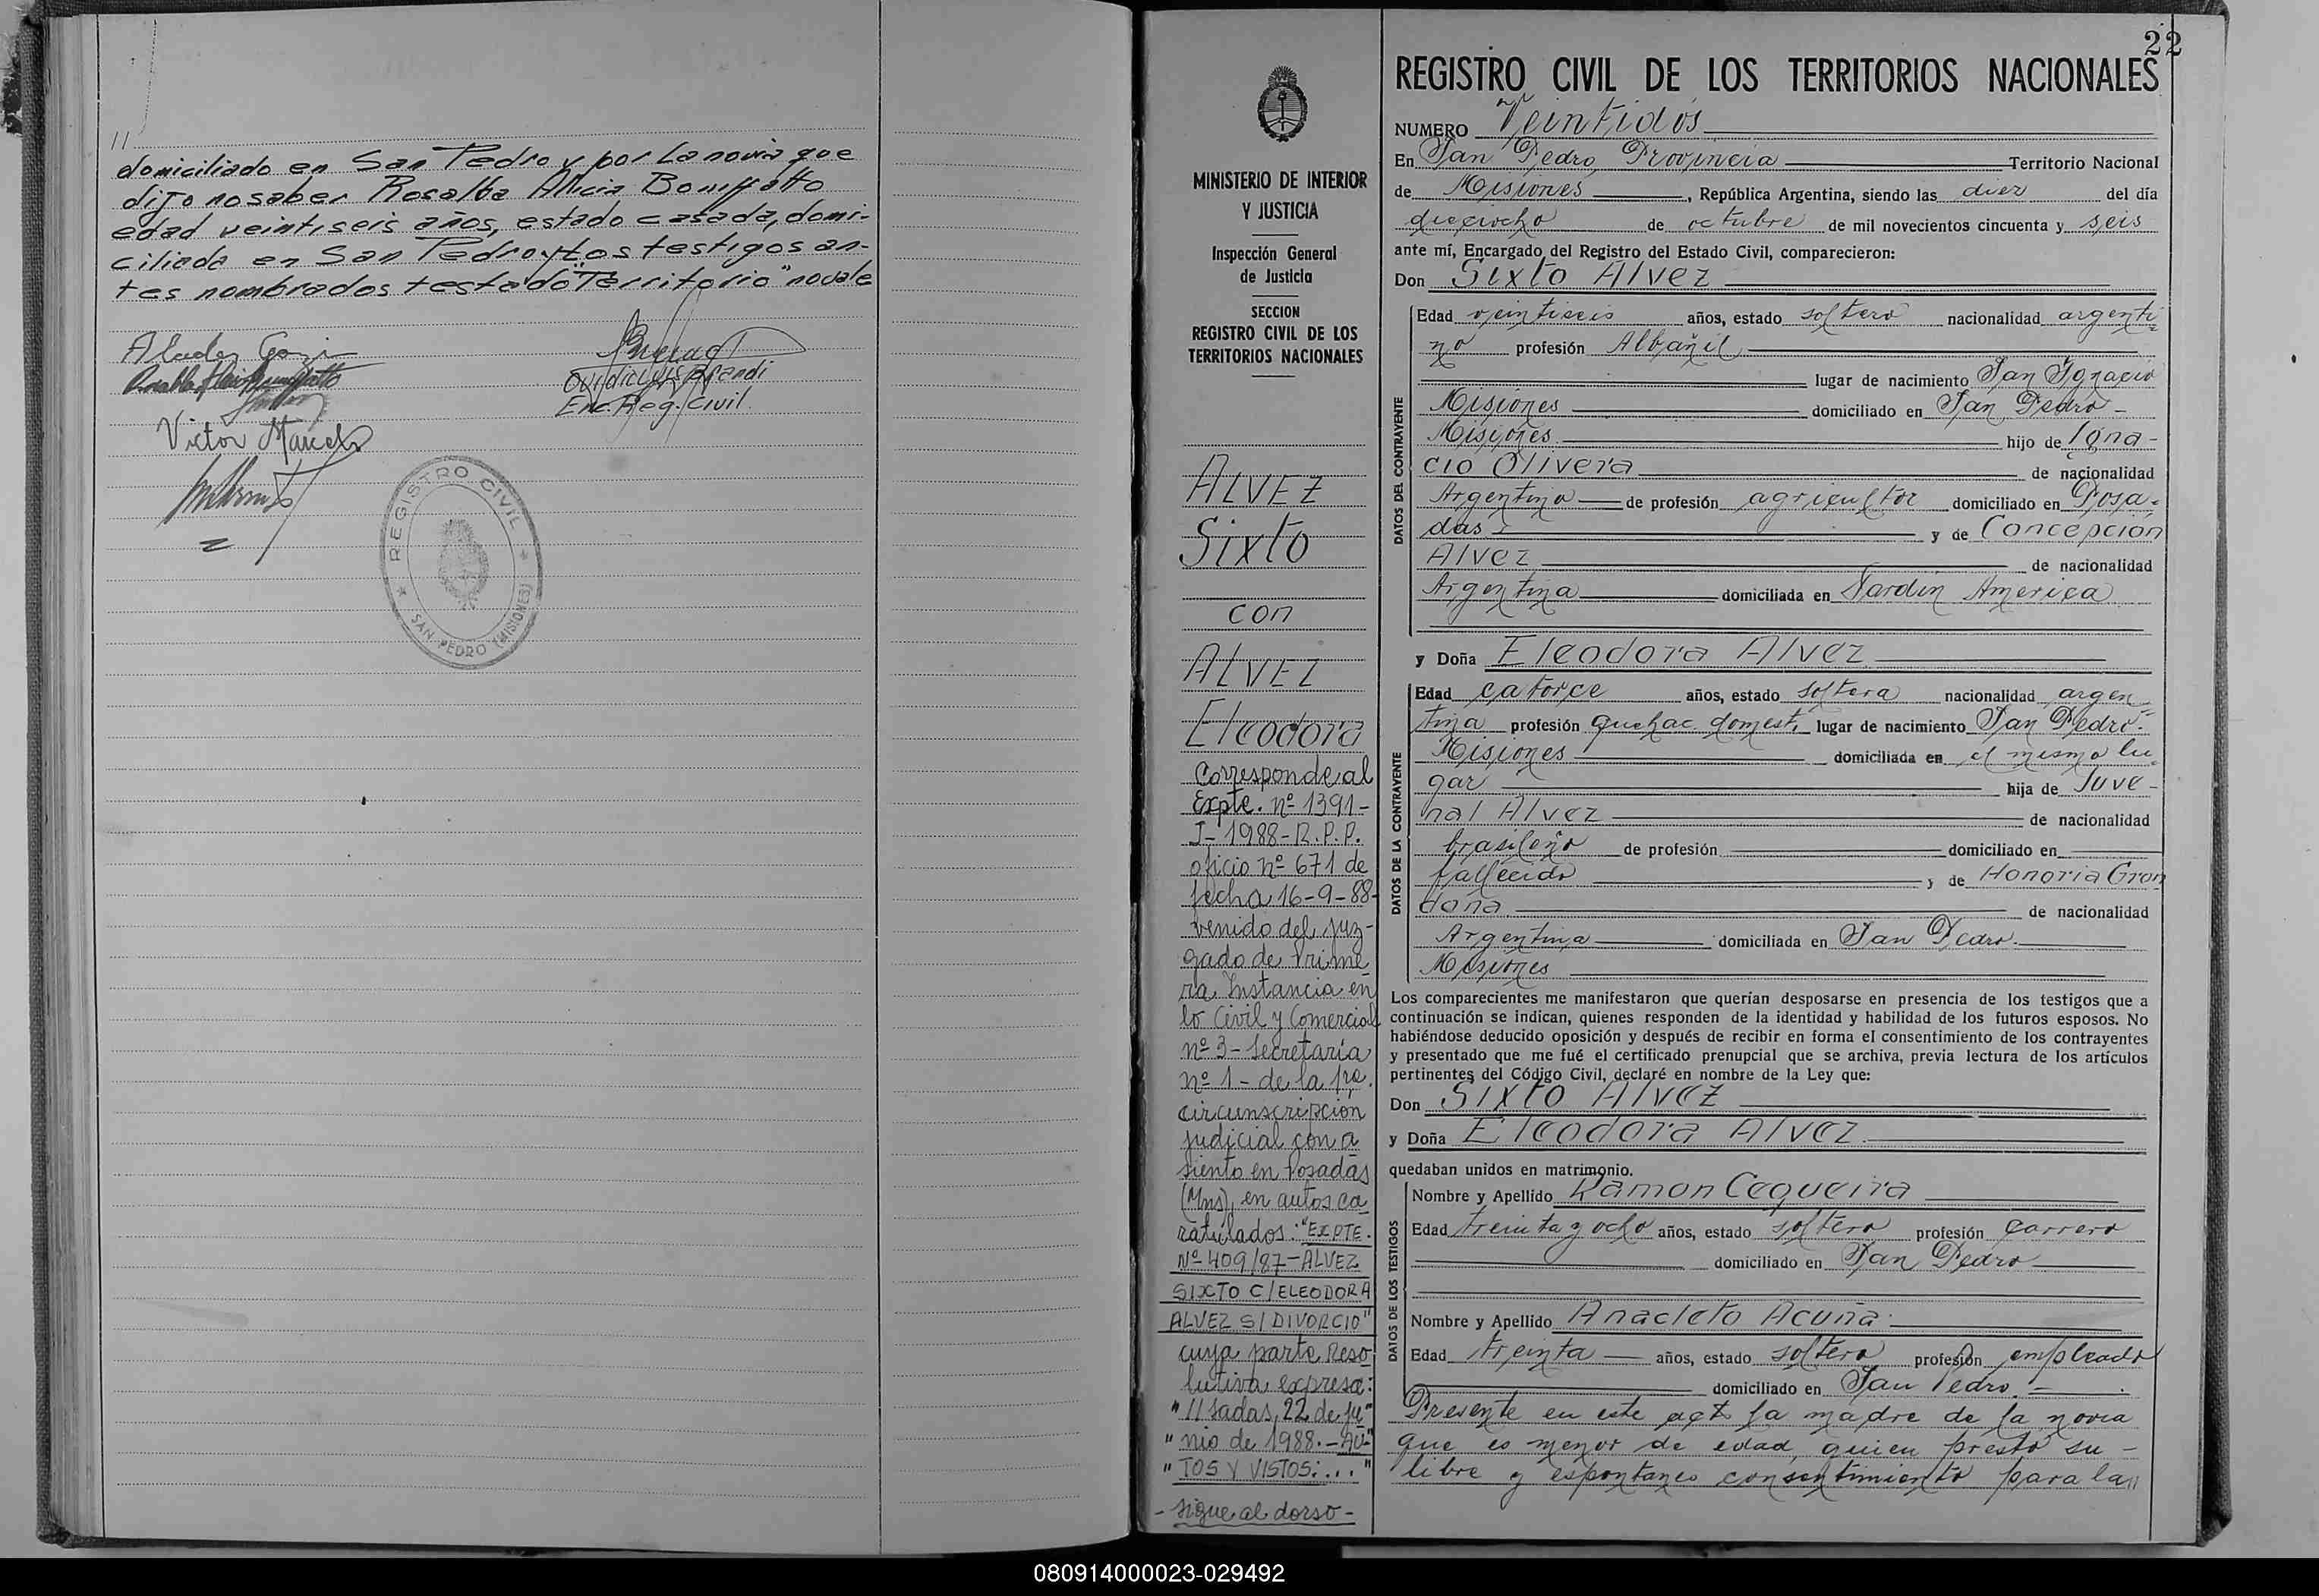 11
domiciliado en San Pedro y por La novia que
dijo no saber Rosalba Alicia Boniffatto
edad veintiseis años, estado casada, domi-
ciliada en San Pedro y Los testigos an-
tes nombrados testado "Territorio" no vale
Ovidio Luis
Enc. Reg. Civil.
Victor
REGISTRO CIVIL
SAN PEDRO (MISIONES)
MINISTERIO DE INTERIOR
Y JUSTICIA
Inspección General
de Justicia
SECCION
REGISTRO CIVIL DE LOS
TERRITORIOS NACIONALES
ALVEZ
Sixto
con
ALVEZ
Eleodora
Corresponde al
Expte. nº 1391-
I-1988-R.P.P.
oficio nº 671 de
fecha 16-9-88-
venido del juz-
gado de Prime
ra Instancia en
lo Civil y Comercial
nº 3 - Secretaría
nº 1 - de la 1ra.
circunscripción
judicial con a
siento en Posadas
(Mns), en autos ca
ratulados: "EXPTE.
Nº 409/87-ALVEZ
SIXTO C/ELEODORA
ALVEZ S/DIVORCIO"
cuya parte Reso
lutiva expresa:
"//sadas, 22 de ju"
"nio de 1988.-AU-"
"TOS Y VISTOS:..."
-sigue al dorso-
22
REGISTRO CIVIL DE LOS TERRITORIOS NACIONALES
NUMERO Veintidos
En San Pedro, Provincia Territorio Nacional
de Misiones, República Argentina, siendo las diez del día
dieciocho de octubre de mil novecientos cincuenta y seis
ante mí, Encargado del Registro del Estado Civil, comparecieron:
Don Sixto Alvez
DATOS DEL CONTRAYENTE
Edad veintiseis años, estado soltero nacionalidad argenti
no profesión Albañil
lugar de nacimiento San Ignacio
Misiones domiciliado en San Pedro-
Misiones hijo de Igna-
cio Olivera de nacionalidad
Argentina de profesión agricultor domiciliado en Posa-
das y de Concepción
Alvez de nacionalidad
Argentina domiciliada en Jardin America
y Doña Eleodora Alvez
DATOS DE LA CONTRAYENTE
Edad catorce años, estado soltera nacionalidad argen
tina profesión quehac. domest. lugar de nacimiento San Pedro-
Misiones domiciliada en el mismo lu-
gar hija de Juve-
nal Alvez de nacionalidad
brasileño de profesión domiciliado en
fallecido y de Honoria Gron
doña de nacionalidad
Argentina domiciliada en San Pedro.
Misiones
Los comparecientes me manifestaron que querían desposarse en presencia de los testigos que a
continuación se indican, quienes responden de la identidad y habilidad de los futuros esposos. No
habiéndose deducido oposición y después de recibir en forma el consentimiento de los contrayentes
y presentado que me fué el certificado prenupcial que se archiva, previa lectura de los artículos
pertinentes del Código Civil, declaré en nombre de la Ley que:
Don Sixto Alvez
y Doña Eleodora Alvez
quedaban unidos en matrimonio.
DATOS DE LOS TESTIGOS
Nombre y Apellido Ramon Cequeira
Edad treinta y ocho años, estado soltero profesión carrero
domiciliado en San Pedro
Nombre y Apellido Anacleto Acuña
Edad treinta años, estado soltero profesión empleado
domiciliado en San Pedro.
Presente en este act. la madre de la novia
que es menor de edad, quien prestó su-
libre y espontaneo consentimiento para la//
080914000023-029492